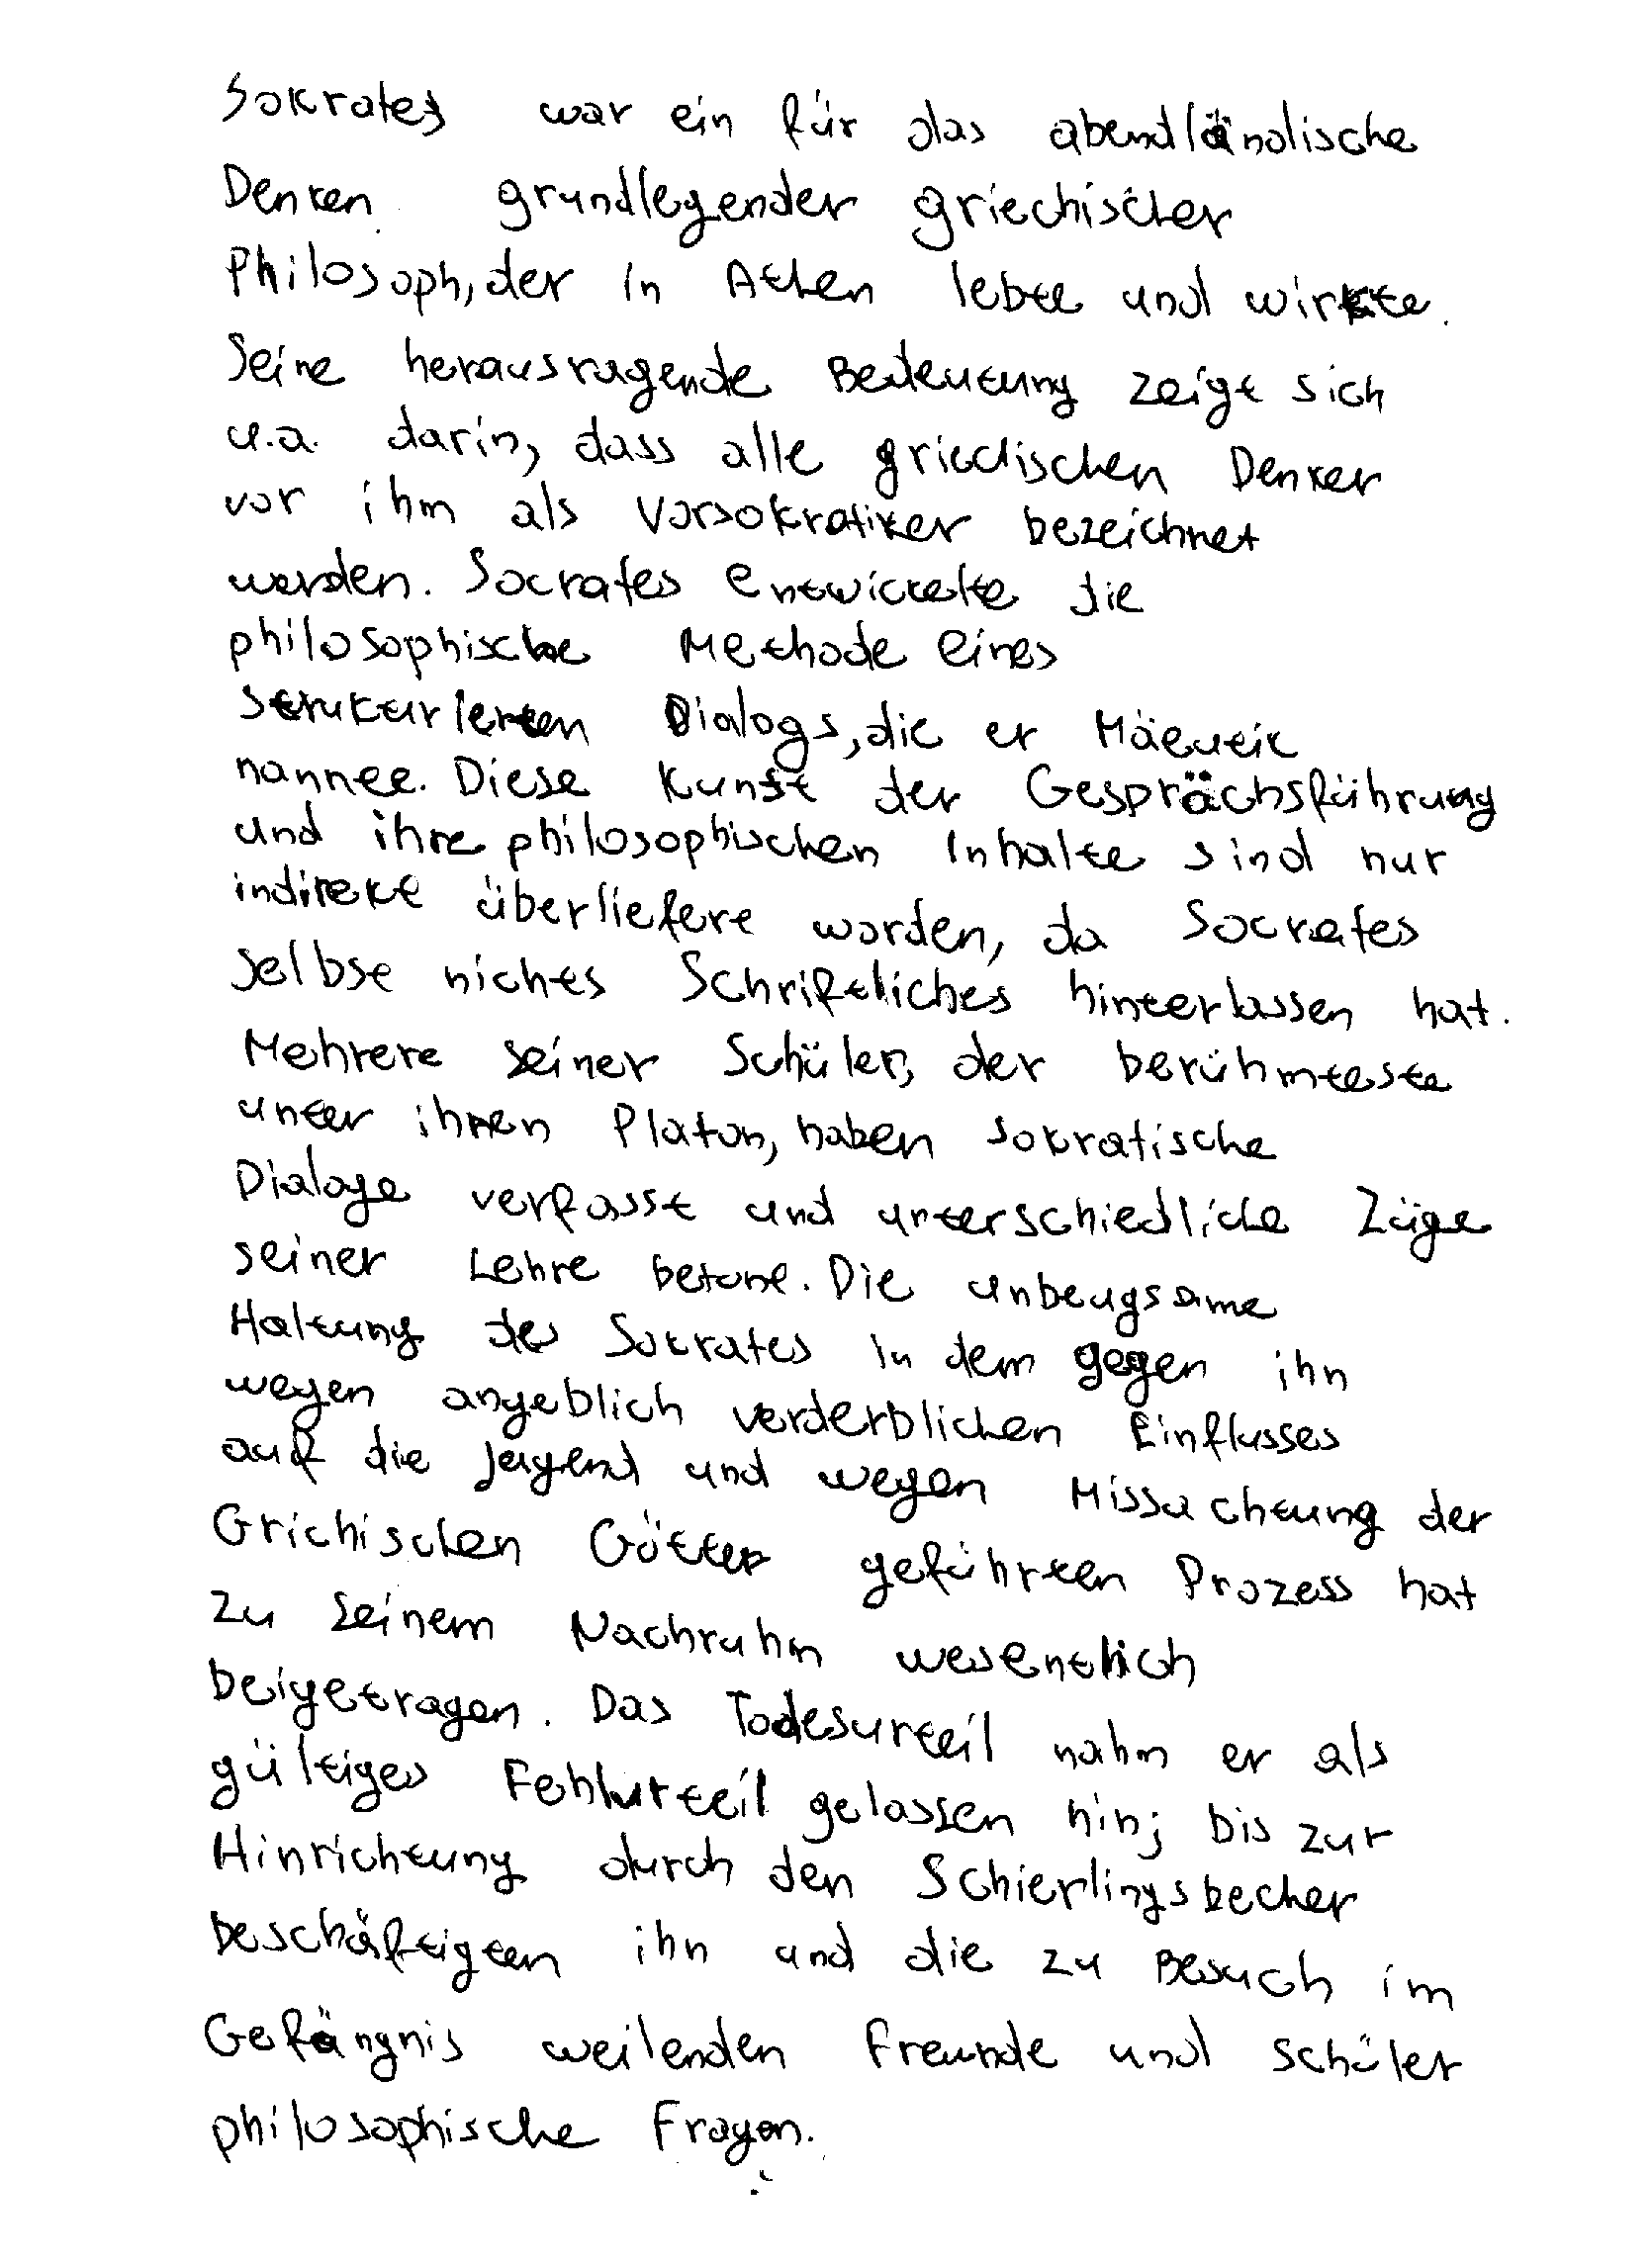 Sokrates war ein für das abendländische
Denken grundlegender griechischer
Philosoph, der in Athen lebte und wirkte.
Seine herausragende Bedeutung zeigt sich
u.a. darin, dass alle griechischen Denker
vor ihm als Vorsokratiker bezeichnet
werden. Socrates entwickelte die
philosophische Methode eines
strukturierten Dialogs, die er Mäeutik
nannte. Diese Kunst der Gesprächsführung
und ihre philosophischen Inhalte sind nur
indirekt überliefert worden, da Socrates
selbst nichts Schriftliches hinterlassen hat.
Mehrere seiner Schüler, der berühmteste
unter ihnen Platon, haben sokratische
Dialoge verfasst und unterschiedliche Züge
seiner Lehre betont. Die unbeugsame
Haltung des Sokrates in dem gegen ihn
wegen angeblich verderblichen Einflusses
auf die Jugend und wegen Missachtung der
Grichischen Götter geführten Prozess hat
zu seinem Nachruhm wesentlich
beigetragen. Das Todesurteil nahm er als
gültiges Fehlurteil gelassen hin; bis zur
Hinrichtung durch den Schierlingsbecher
beschäftigten ihn und die zu Besuch im
Gefängnis weilenden Freunde und Schüler
philosophische Fragen.